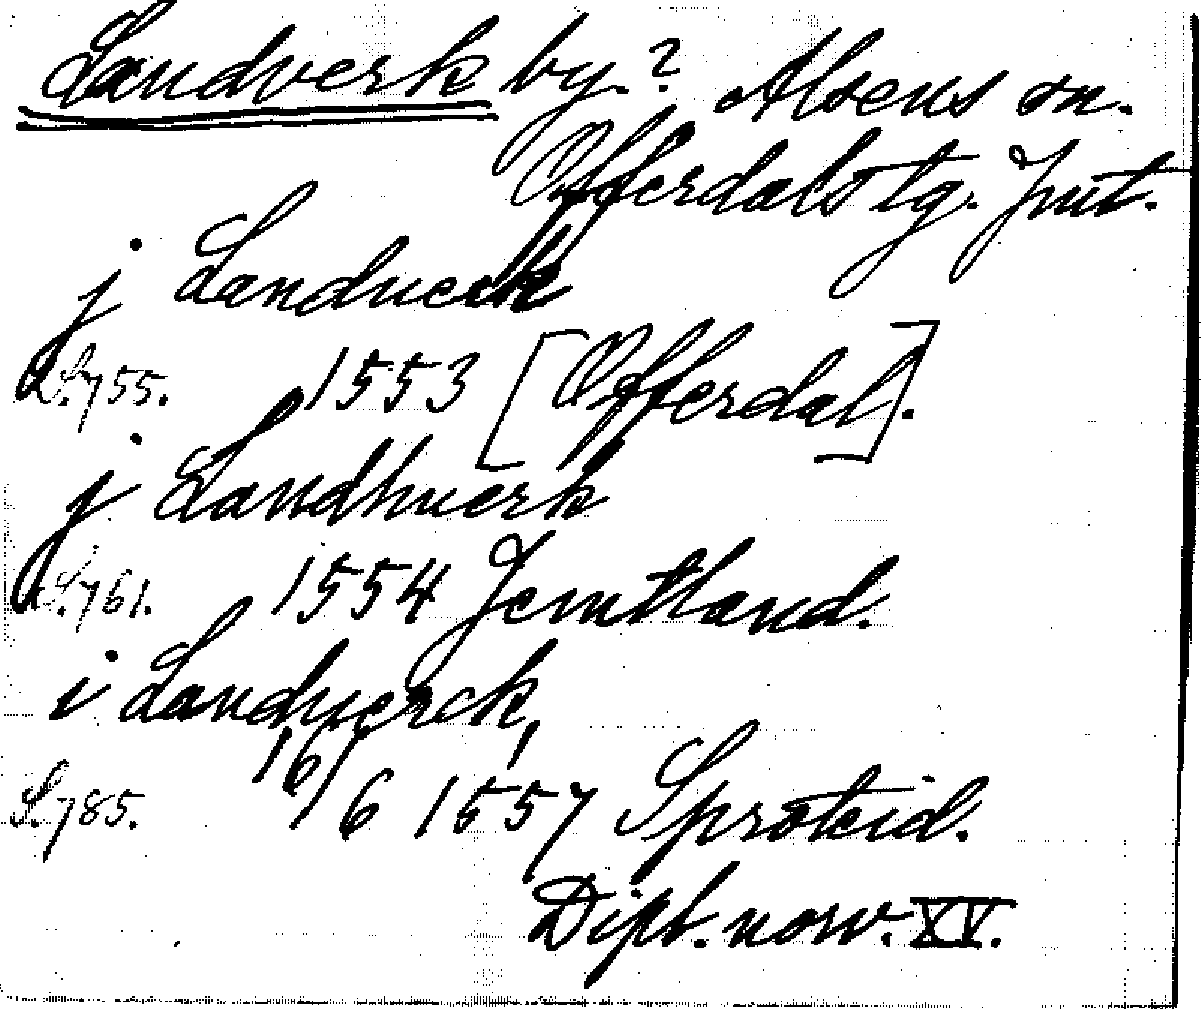 Landverk by.? Alsens sn.
Offerdals tg. Jmt.
j Landverk
S.755. 1553 [Offerdal].
j Landhverk
S.761. 1554 Jemtland.
i Landverck,
S.785. 16/6 1557 Sproteid.
Dipl. norv. XV.